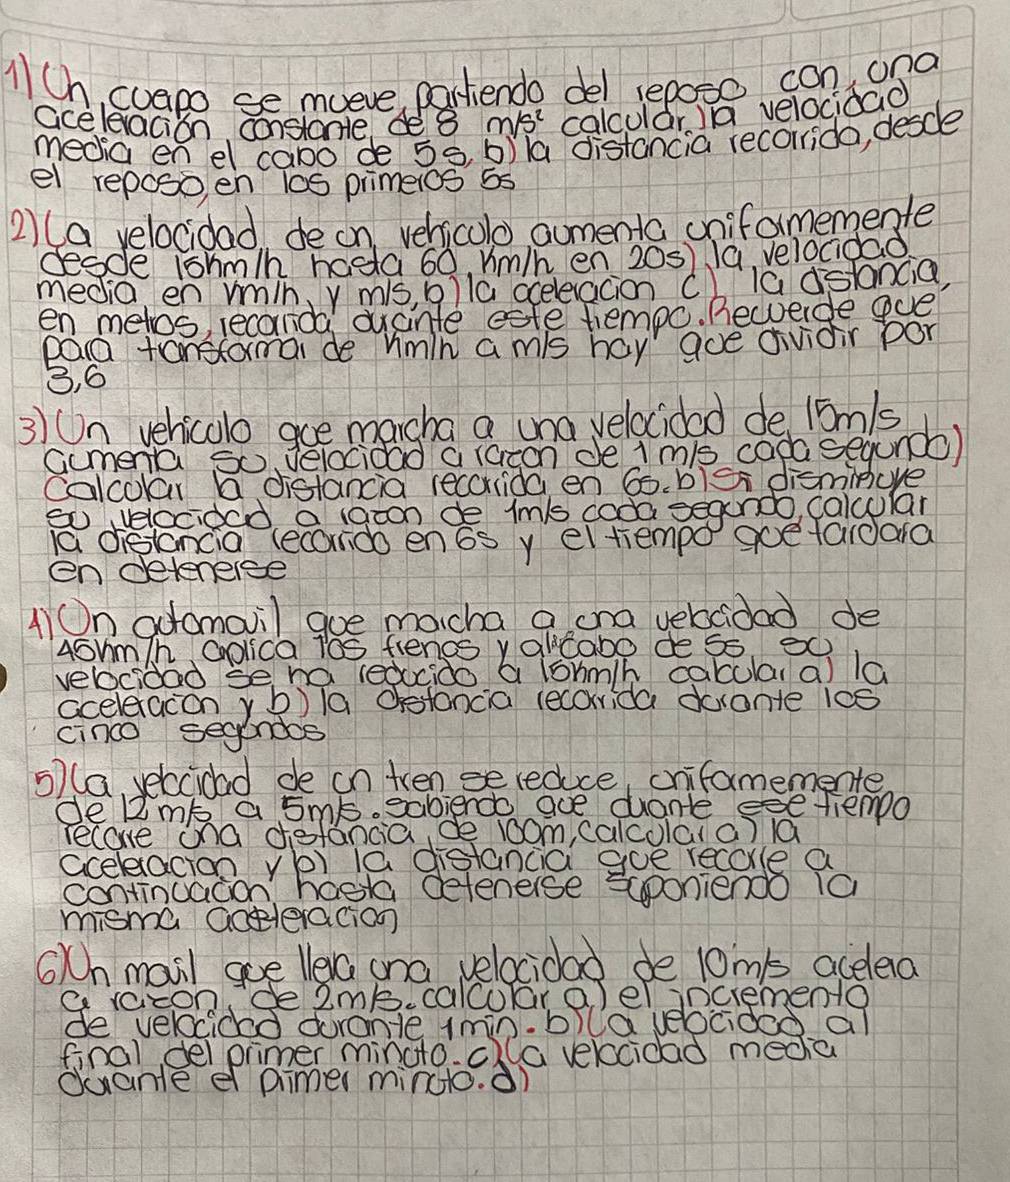 1) Un cuepo se mueve, partiendo del reposo con, una
aceleración constante de 8 m/s² calcular) la velocidad
media en el cabo de 5s, b) la distancia recorrida, desde
el reposo, en los primeros 5s
2) La velocidad de un vehiculo aumenta uniformemente
desde 15km/h hasta 60 km/h en 20s) la velocidad
media en km/h y m/s, b) la aceleracion c) la distancia,
en metros, recorrida durante este tiempo. Recuerde que
para transformar de km/h a m/s hay que dividir por
3,6
3) Un vehiculo que marcha a una velocidad de 15m/s
aumenta su velocidad a razon de 1 m/s cada segundo)
Calcular la distancia recorrida en 6s. b) Si disminuye
su velocidad a razon de 1m/s cada segundo, calcular
la distancia recorrido en 6s y el tiempo que tardara
en detenerse
4) Un automovil que marcha a una velocidad de
45km/h aplica los frenos y al cabo de 5s su
velocidad se ha reducido a 15km/h calcular a) la
aceleracion y b) la distancia recorrida durante los
cinco segundos
5) La velocidad de un tren se reduce uniformemente
de 12 m/s a 5m/s. sabiendo que duante ese tiempo
recorre una distancia de 100m, calcular a) la
aceleracion y b) la distancia que recorre a
continuacion hasta detenerse suponiendo la
misma aceleracion
6) Un movil que lleva una velocidad de 10m/s acelera
a razon de 2m/s. calcular a) el incremento
de velocidad durante 1min. b) La velocidad al
final del primer minuto. c) La velocidad media
durante el primer minuto. d)